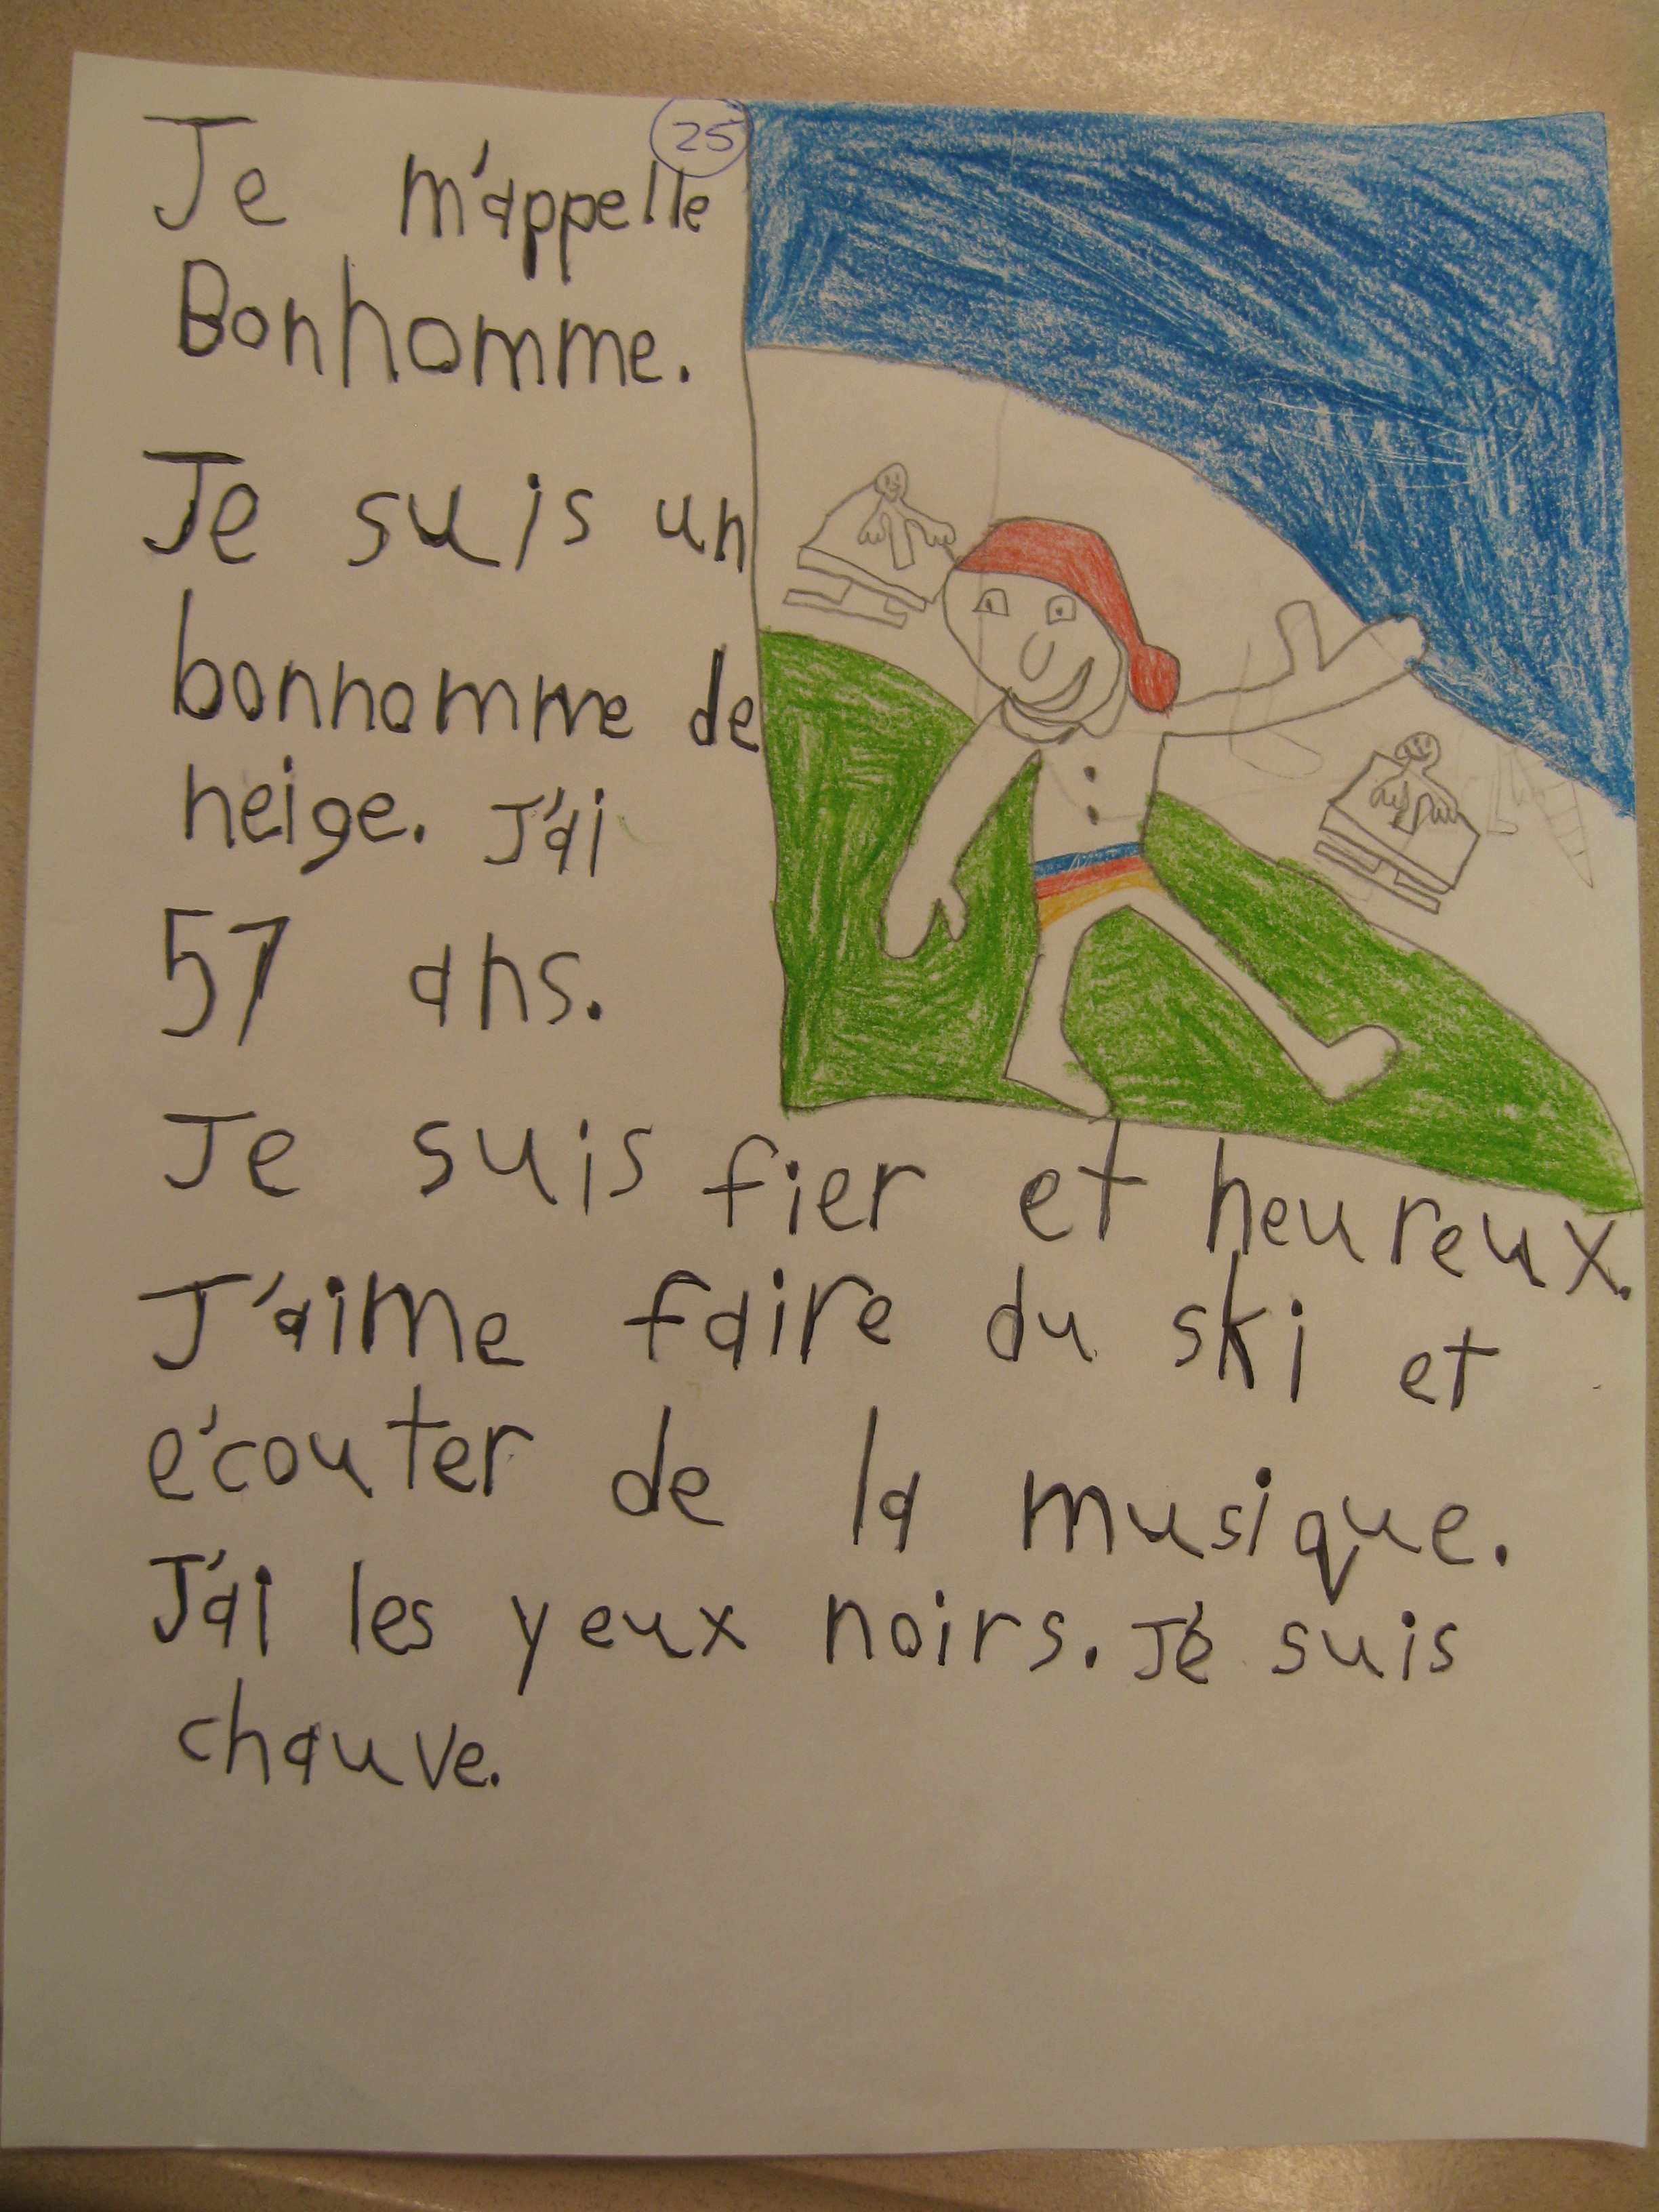 25
Je m'appelle
Bonhomme.
Je suis un
bonhomme de
neige. J'ai
57 ans.
Je suis fier et heureux.
J'aime faire du ski et
écouter de la musique.
J'ai les yeux noirs. Je suis
chauve.